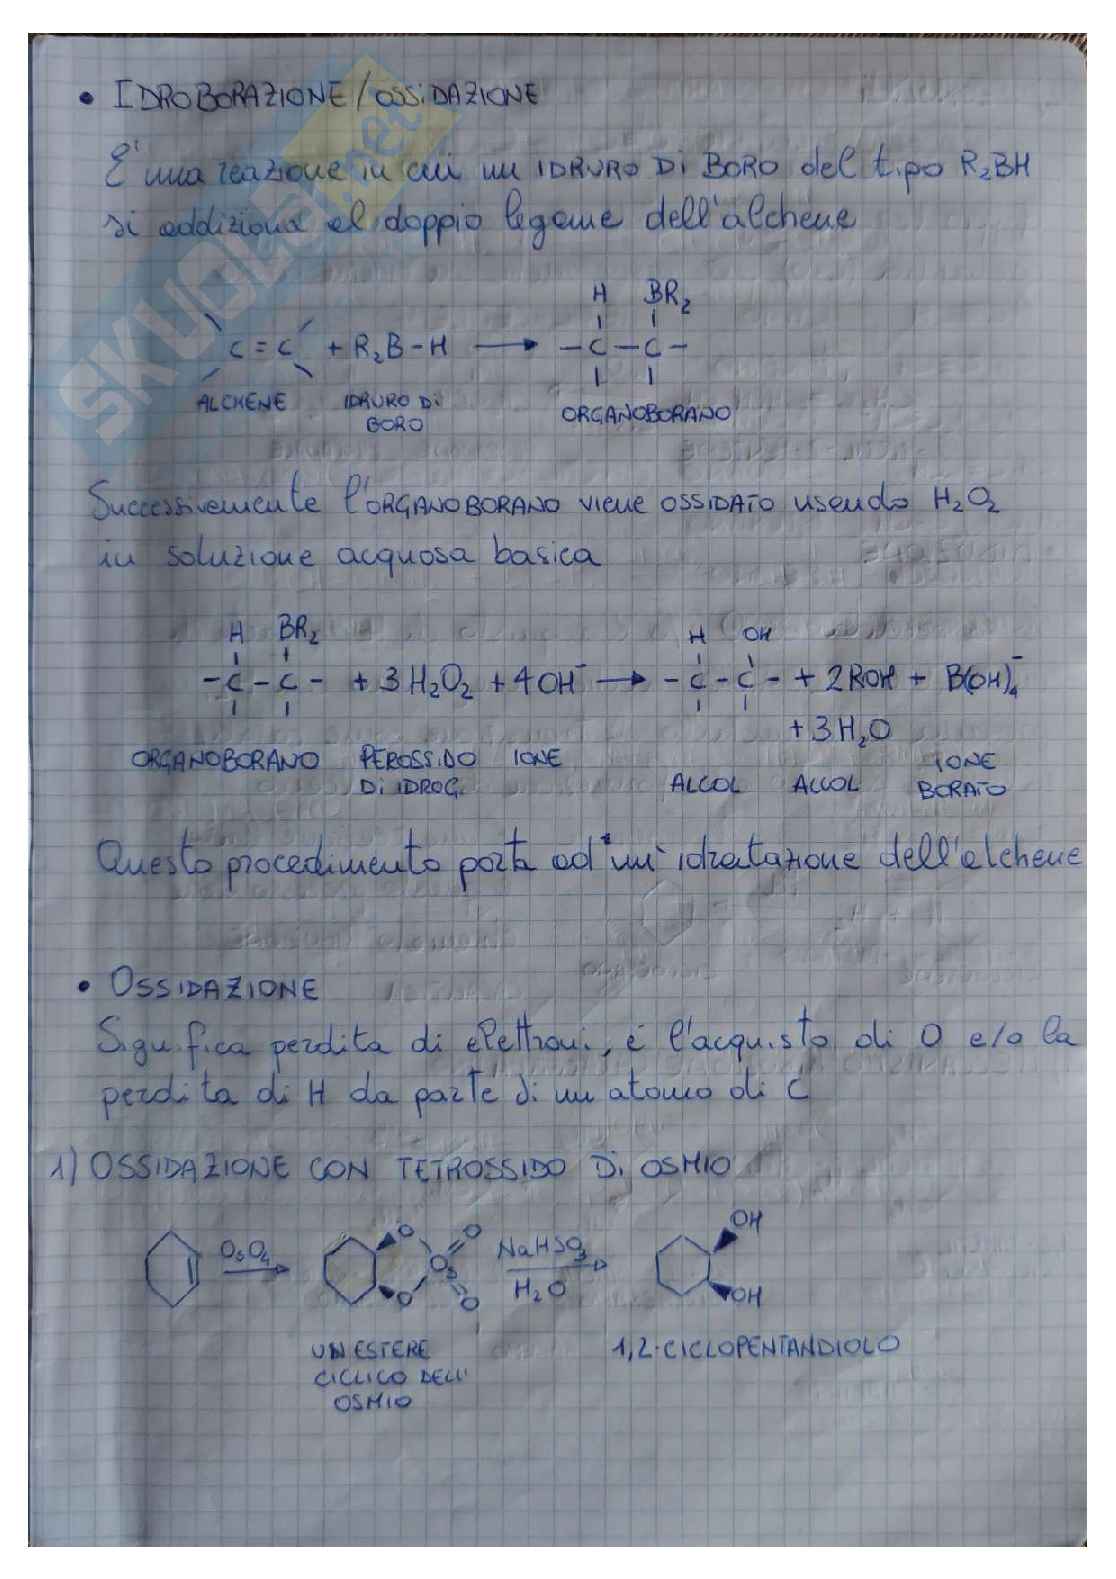 • IDROBORAZIONE/OSSIDAZIONE
E' una reazione in cui un IDRURO DI BORO del tipo R₂BH
si addiziona al doppio legame dell'alchene
H BR₂
C = C + R₂B - H → - C - C -
ALCHENE IDRURO DI BORO ORGANOBORANO
Successivamente l'ORGANOBORANO viene OSSIDATO usando H₂O₂
in soluzione acquosa basica
H BR₂ H OH
- C - C - + 3 H₂O₂ + 4OH⁻ → - C - C - + 2ROH + B(OH)₄⁻
+ 3 H₂O
ORGANOBORANO PEROSSIDO DI IDROG. IONE ALCOL ALCOL IONE BORATO
Questo procedimento porta ad un' idratazione dell'alchene
• OSSIDAZIONE
Significa perdita di elettroni, è l'acquisto di O e/o la
perdita di H da parte di un atomo di C
1) OSSIDAZIONE CON TETROSSIDO DI OSMIO
OsO₄ O O Os O O NaHSO₃ H₂O OH OH
UN ESTERE 1,2-CICLOPENTANDIOLO
CICLICO DELL'
OSMIO
SKUOLA.net